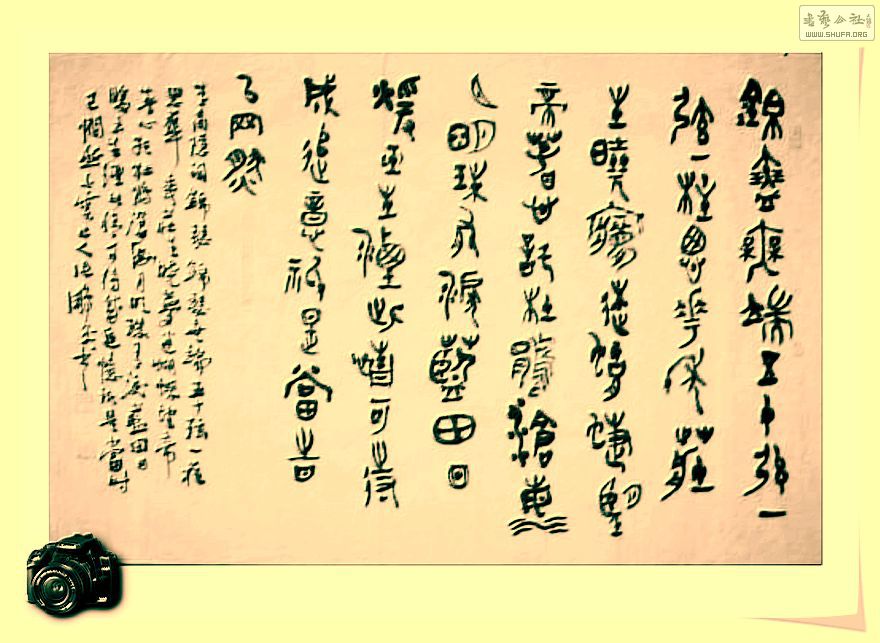 書藝公社
WWW.SHUFA.ORG
錦瑟無端五十弦一
弦一柱思華年莊
生曉夢迷蝴蝶望
帝春心託杜鵑滄海
月明珠有淚藍田日
暖玉生煙此情可待
成追憶祇是當時
已惘然
李商隱詞錦瑟錦瑟無端五十弦一柱
思華年莊生曉夢迷蝴蝶望帝
春心託杜鵑滄海月明珠有淚藍田日
暖玉生煙此情可待成追憶祇是當時
已惘然